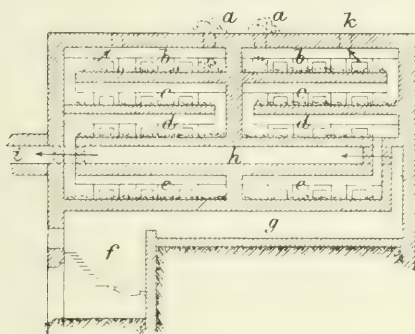 a a k
b b
c c
d d
i h
e e
g
f